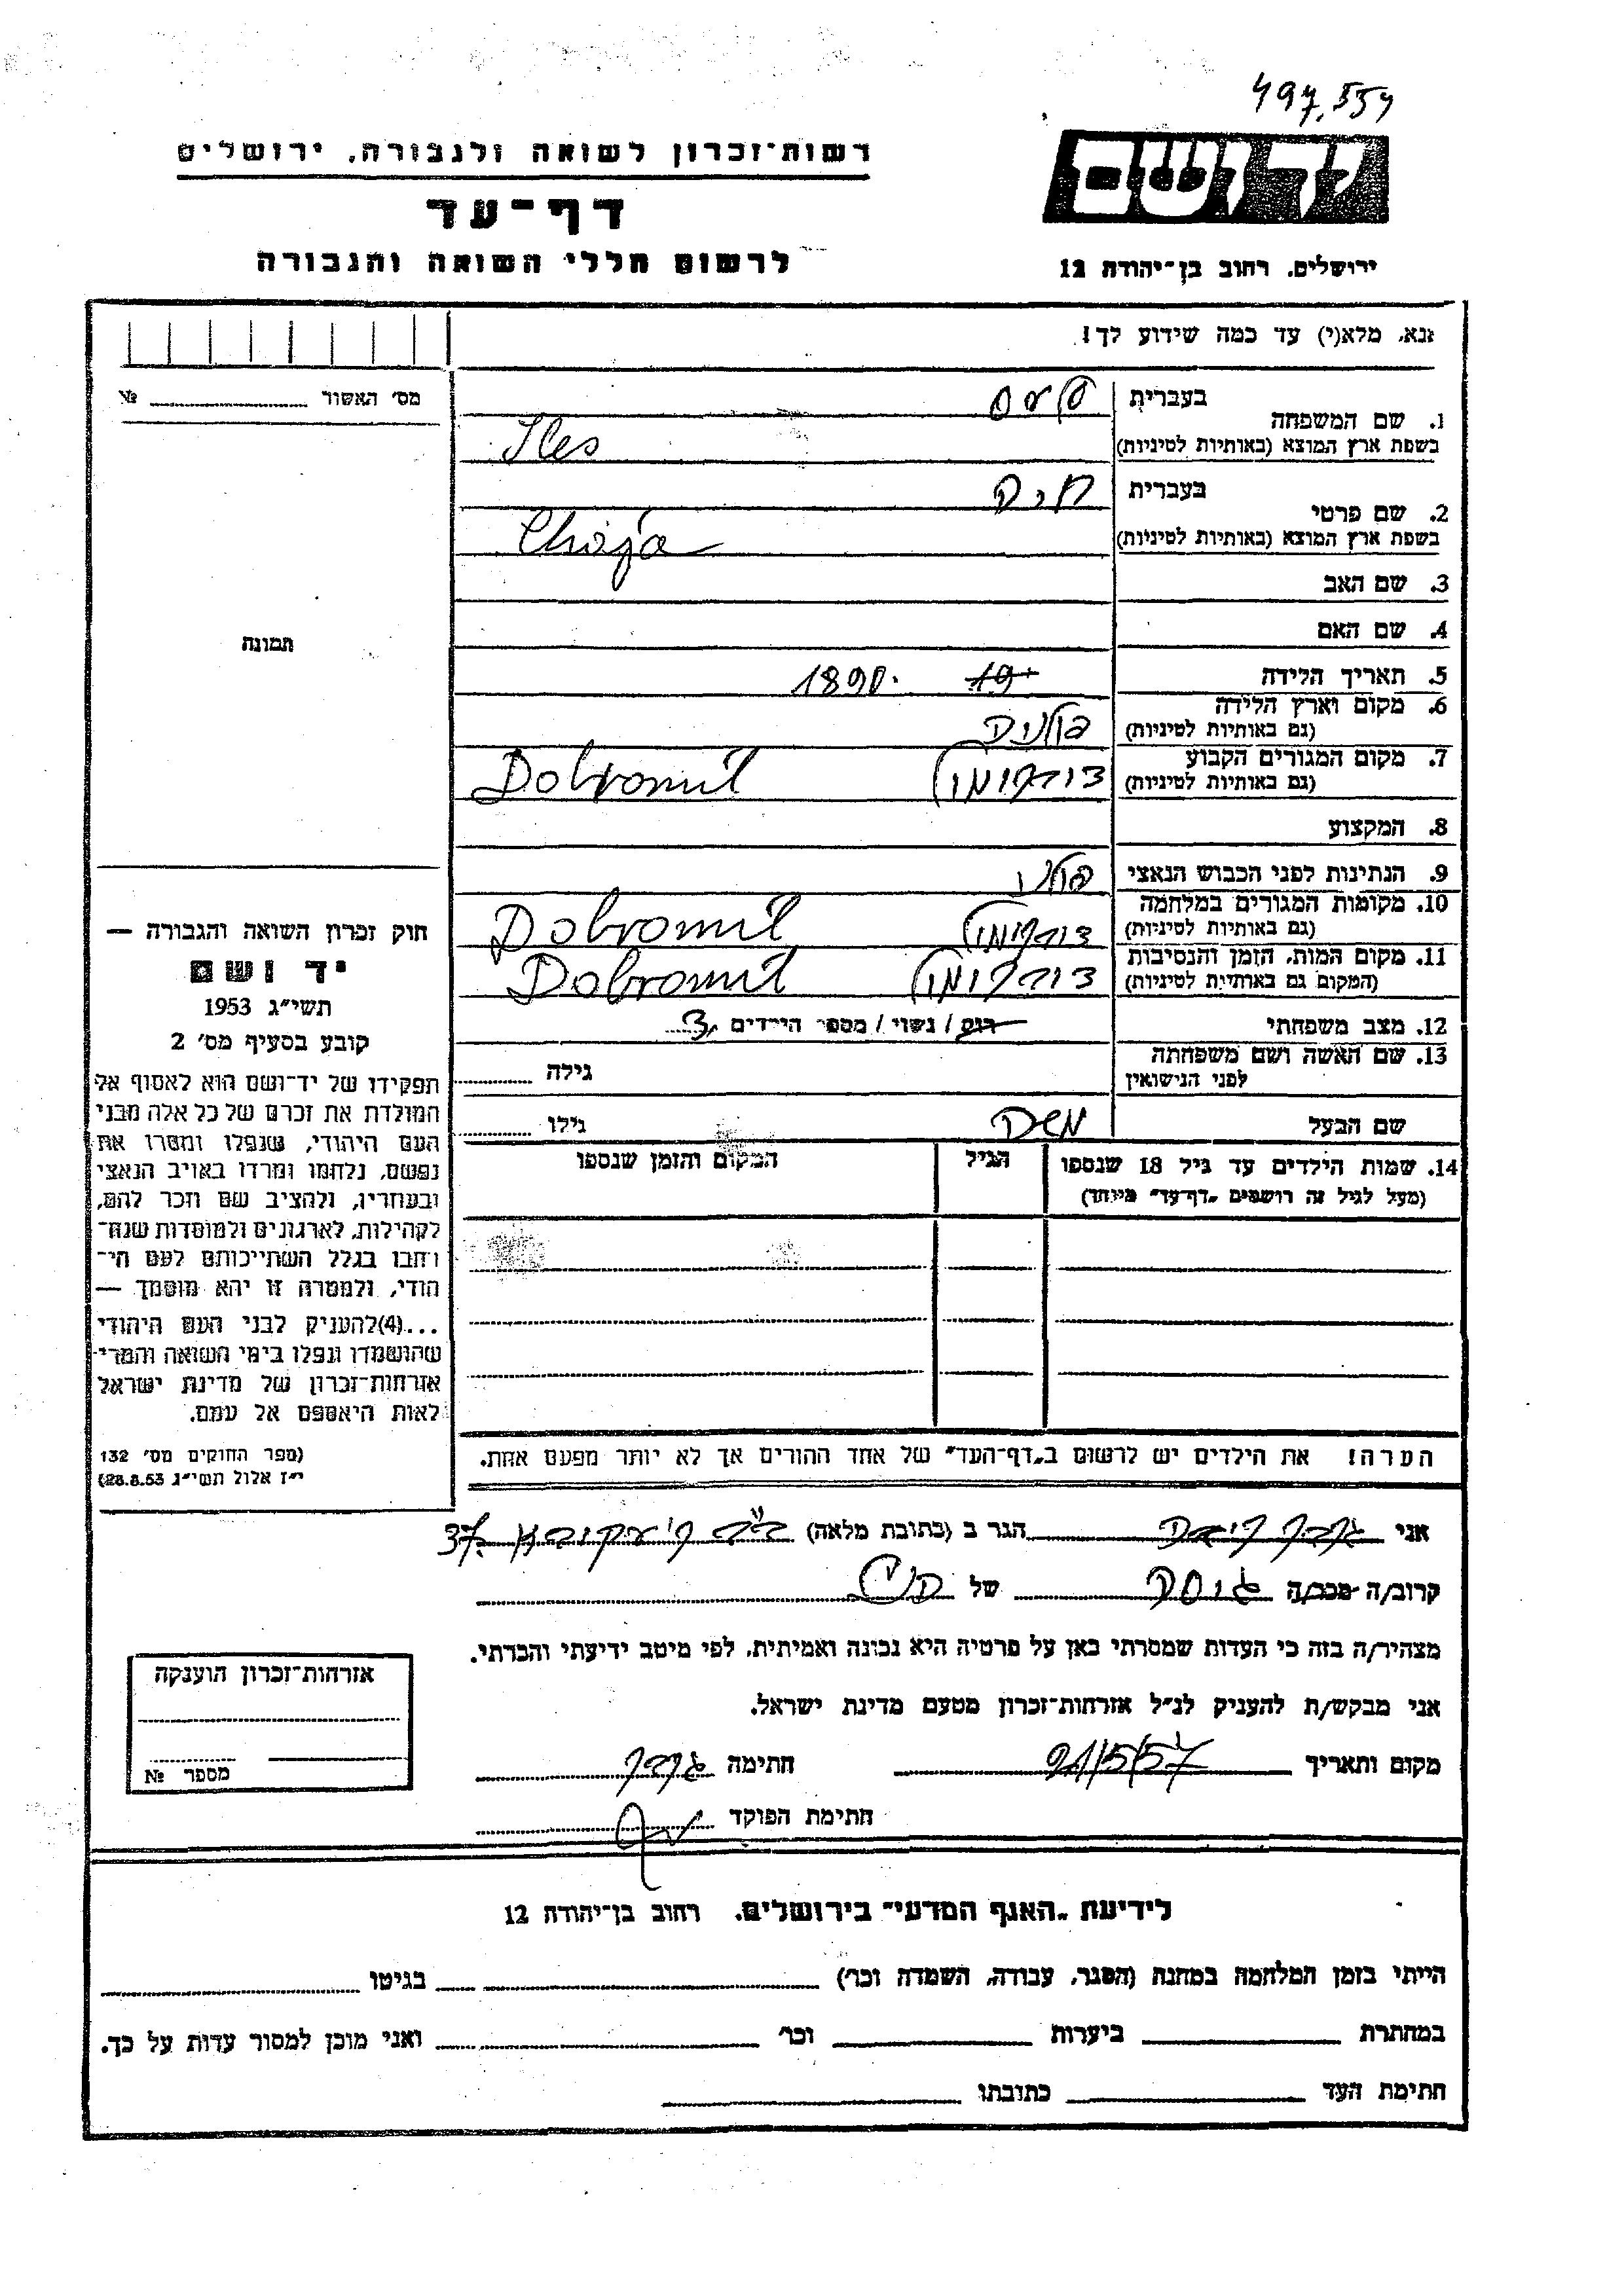 497.554
רשות־זכרון לשואה ולגבורה, ירושלים
דף־עד
לרשום חללי השואה והגבורה
יד ושם
ירושלים, רחוב בן־יהודה 12
נא, מלא(י) עד כמה שידוע לך!
מס׳ האשור №
תמונה
1. שם המשפחה
בעברית
בשפת ארץ המוצא (באותיות לטיניות) Iles
2. שם פרטי
בעברית חיה
בשפת ארץ המוצא (באותיות לטיניות) Chaja
3. שם האב
4. שם האם
5. תאריך הלידה 19 1890.
6. מקום וארץ הלידה פולניה
(גם באותיות לטיניות)
7. מקום המגורים הקבוע דוברומיל Dobromil
(גם באותיות לטיניות)
8. המקצוע
9. הנתינות לפני הכבוש הנאצי פולני
10. מקומות המגורים במלחמה דוברומיל Dobromil
(גם באותיות לטיניות)
11. מקום המות, הזמן והנסיבות דוברומיל Dobromil
(המקום גם באותיות לטיניות)
12. מצב משפחתי רווק / נשוי / מספר הילדים 3
13. שם האשה ושם משפחתה גילה
לפני הנישואין
שם הבעל משה גילו
14. שמות הילדים עד גיל 18 שנספו הגיל המקום והזמן שנספו
(מעל לגיל זה רושמים „דף־עד״ מיוחד)
הערה! את הילדים יש לרשום ב„דף־העד״ של אחד ההורים אך לא יותר מפעם אחת.
חוק זכרון השואה והגבורה —
יד ושם
תשי״ג 1953
קובע בסעיף מס׳ 2
תפקידו של יד־ושם הוא לאסוף אל
המולדת את זכרם של כל אלה מבני
העם היהודי, שנפלו ומסרו את
נפשם, נלחמו ומרדו באויב הנאצי
ובעוזריו, ולהציב שם וזכר להם,
לקהילות, לארגונים ולמוסדות שנח־
רבו בגלל השתייכותם לעם הי־
הודי, ולמטרה זו יהא מוסמך —
...(4) להעניק לבני העם היהודי
שהושמדו ונפלו בימי השואה והמרי
אזרחות־זכרון של מדינת ישראל
לאות היאספם אל עמם.
(ספר החוקים מס׳ 132
י״ז אלול תשי״ג 28.8.53)
אני הגר ב (כתובת מלאה) 37.
קרוב/ה מכר/ה של
מצהיר/ה בזה כי העדות שמסרתי כאן על פרטיה היא נכונה ואמיתית, לפי מיטב ידיעתי והכרתי.
אני מבקש/ת להעניק לנ״ל אזרחות־זכרון מטעם מדינת ישראל.
מקום ותאריך 21/5/57 חתימה
חתימת הפוקד
אזרחות־זכרון הוענקה
מספר №
לידיעת „האגף המדעי״ בירושלים, רחוב בן־יהודה 12
הייתי בזמן המלחמה במחנה (הסגר, עבודה, השמדה וכו׳) בגיטו
במחתרת ביערות וכו׳ ואני מוכן למסור עדות על כך.
חתימת העד כתובתו